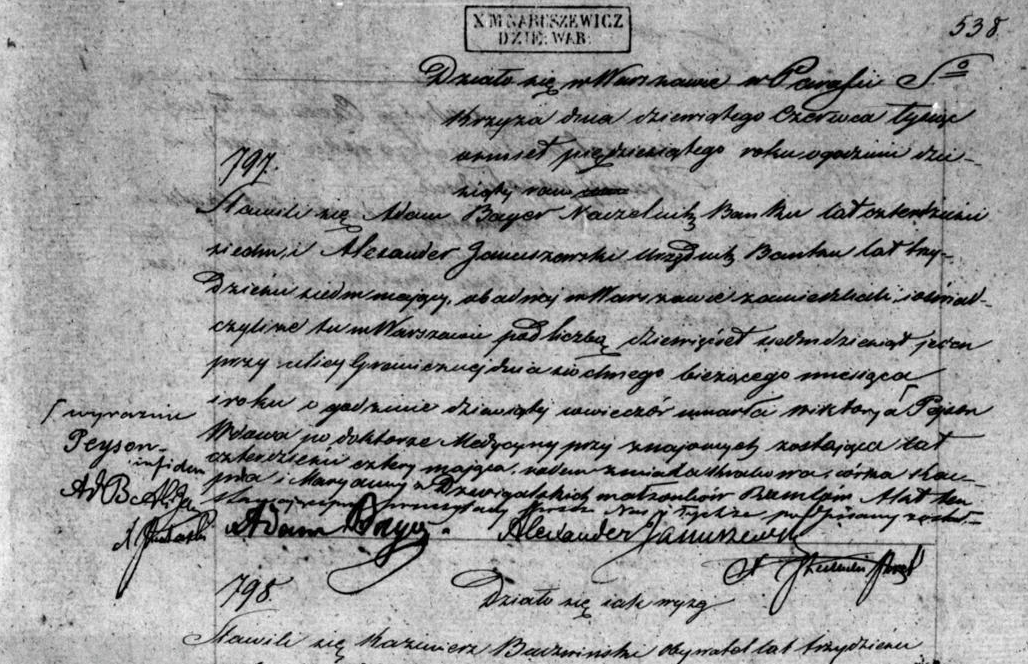 X M NARUSZEWICZ
DZIE: WAR:
538
Działo się w Warszawie w Parafii Sgo
Krzyża dnia dziewiątego Czerwca tysiąc
ośmset pięćdziesiątego roku o godzinie dzie-
797.
siątej rano
Stawili się Adam Bayer Naczelnik Banku lat czterdzieści
siedm, i Alexander Januszewski Urzędnik Banku lat trzy-
dzieści siedm mający, obadwaj w Warszawie zamieszkali, i oświad-
czyli że tu w Warszawie pod liczbą dziewięćset siedmdziesiąt jeden
przy ulicy Granicznej dnia siódmego bieżącego miesiąca
i roku o godzinie dziewiątej wieczór umarła Wiktorya Pejson
Wdowa po doktorze Medycyny przy znajomych zostająca lat
czterdzieści cztery mająca, rodem z miasta Krakowa, córka
i Maryanny z małżonków Akt ten
Adam Bayer. Alexander Januszewski
wyrazim
Peyson-
in fidem
798.
Działo się jak wyżej
Stawili się Kazimierz obywatel lat trzydzieści